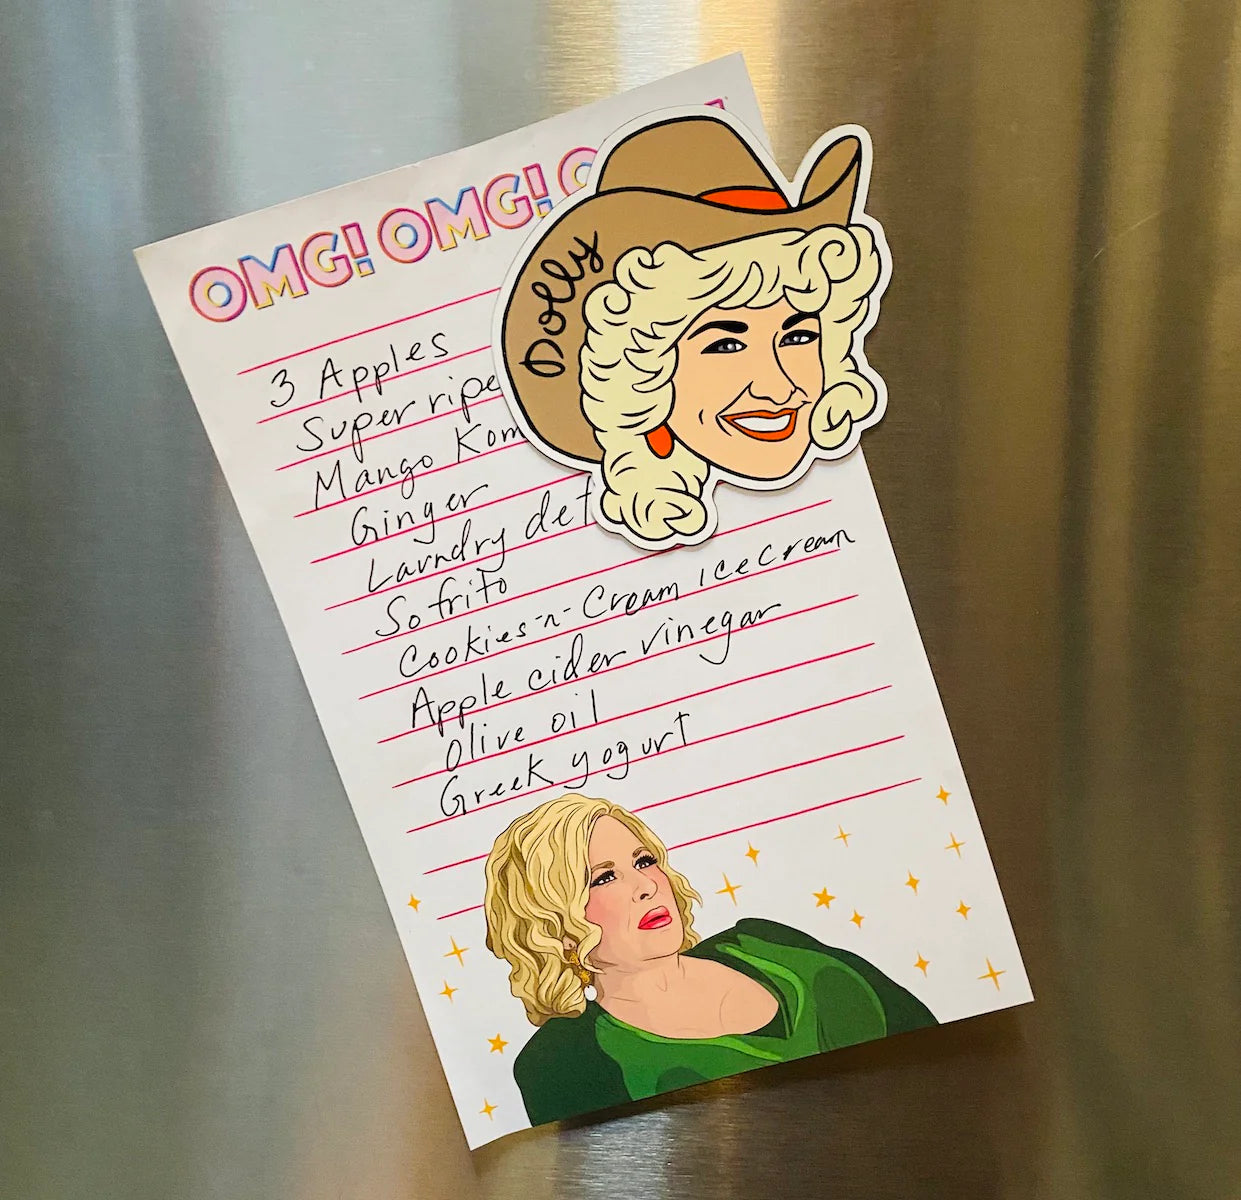 OMG! OMG!
Dolly
3 Apples
Super ripe
Mango Kom
Ginger
Laundry det
Sofrito
Cookies-n-Cream Ice Cream
Apple cider vinegar
Olive oil
Greek yogurt